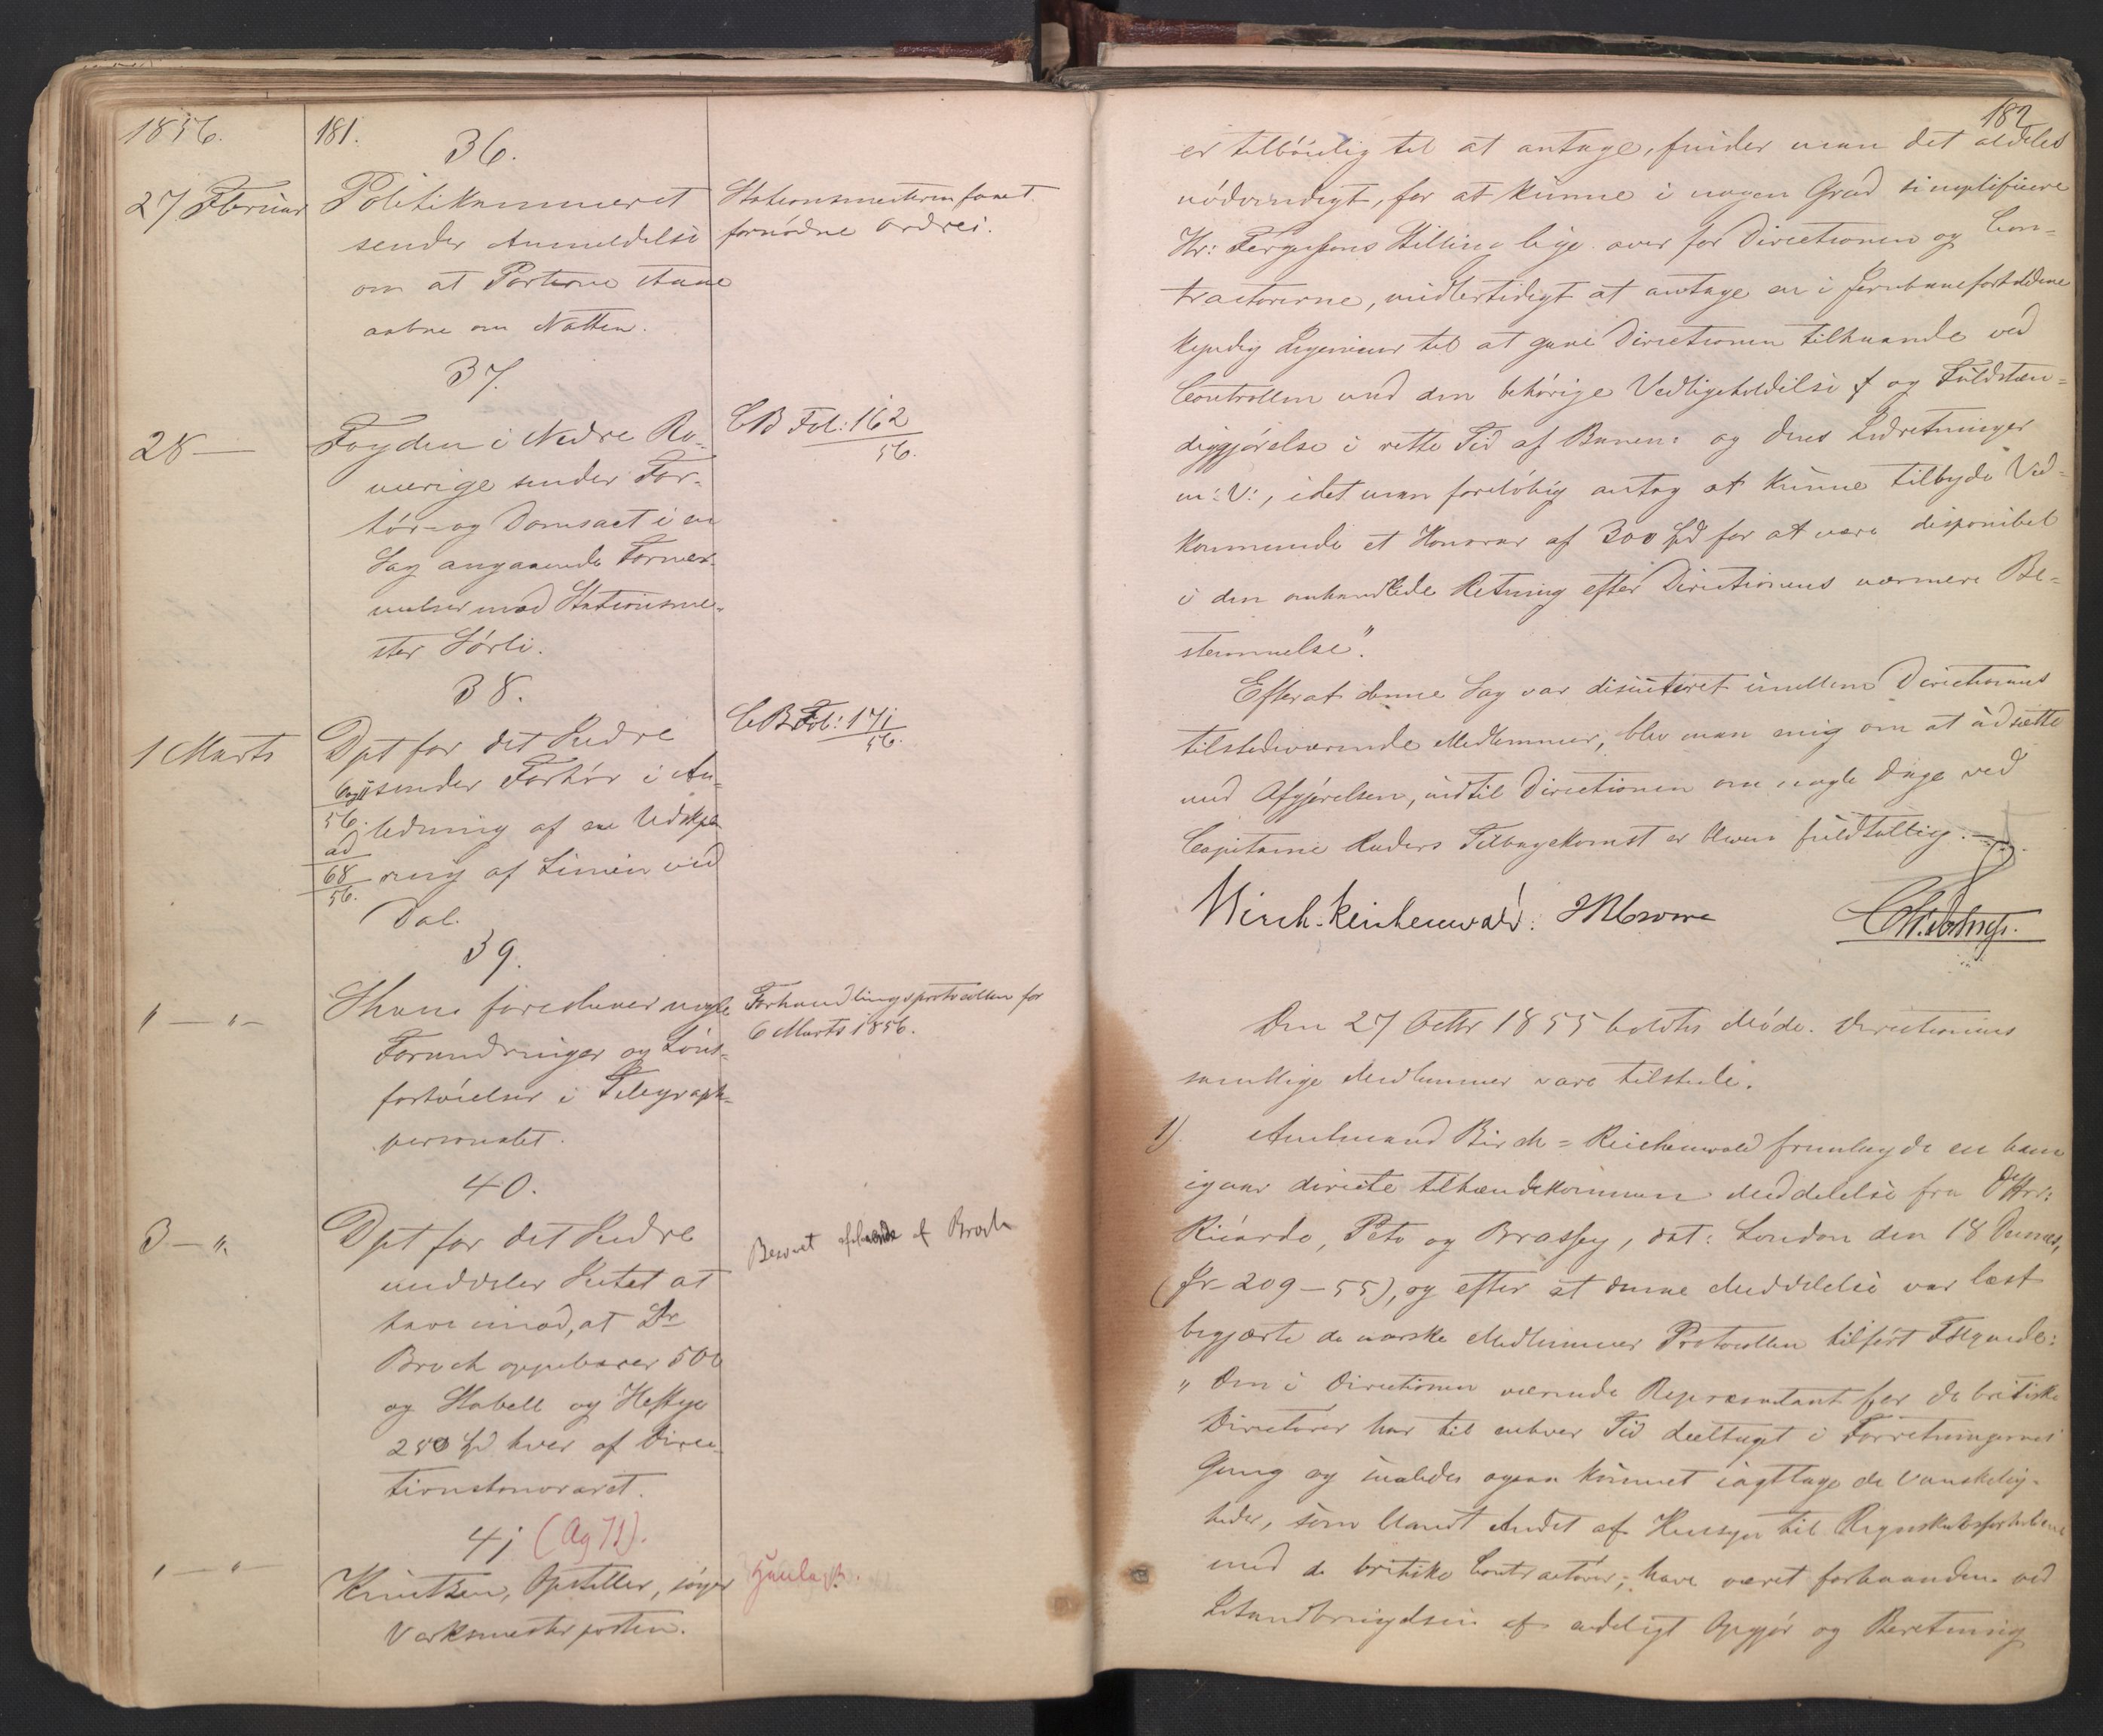 1856.
181.
36.
27 Februar
Politikammeret
sender Anmeldelse
om at Portene staae
aabne om Natten.
Stationsmesteren faaet
fornødne Ordrer.
37.
28 —
Fogden i Nedre Ro-
merige sender For-
hør- og Domsact i en
Sag angaaende Fornær-
melser mod Stationsme-
ster Sørli.
CB Fol: 162
56.
38.
1 Marts
Dpt for det Indre
sender Forhør i An-
56.
ledning af en Udskpo-
ad
68
56.
ring af Linien ved
Dal.
CB Fol: 171
56.
39.
" — " —
foreslaaer nogle
Forandringer og Løns-
forhøielser i Telegraph-
personalet.
Forhandlingsprotocollen for
6 Marts 1856.
40.
3 — "
Dpt for det Indre
meddeler Intet at
have imod, at Dr
Broch oppebærer 500
og Stabell og Heftye
250 Spd hver af Direc-
tionshonoraret.
Besørget af Broch
41 (Ag 71).
" — " —
Knutsen, Opstiller, søger
Værkmesterposten.
Henlagt.
182
er tilbøielig til at antage, finder man det aldeles
nødvendigt, for at kunne i nogen Grad simplificere
Hr: Fergussons Stilling lige over for Directionen og Con-
tractorerne, midlertidigt at antage en i Jernbaneforholdene
kyndig Ingenieur til at gaae Directionen tilhaande ved
Controllen med den behørige Vedligeholdelse og Fuldstæn-
diggjørelse i rette Tid af Banen og dens Indretninger
m: V:, idet man foreløbig antog at kunne tilbyde Ved-
kommende et Honorar af 300 Spd for at være disponibel
i den omhandlede Retning efter Directionens nærmere Be-
stemmelse".
Efterat denne Sag var discuteret imellem Directionens
tilstedeværende Medlemmer, blev man enig om at udsætte
med Afgjørelsen, indtil Directionen om nogle Dage ved
Capitaine Ræders Tilbagekomst er bleven fuldtallig.
Birch-Reichenwald.
Den 27 Octbr 1855 holdtes Møde. Directionens
samtlige Medlemmer vare tilstede.
1). Amtmand Birch-Reichenwald fremlagde en ham
igaar directe tilhændekommen Meddelelse fra DHrr:
Ricardo, Peto og Brassey, dat: London den 18 Dennes,
(Jr- 209 – 55), og efter at denne Meddelelse var læst
begjærte de norske Medlemmer Protocollen tilført Følgende:
" Den i Directionen værende Repræsentant for de britiske
Directører har til enhver Tid deeltaget i Forretningernes
Gang og saaledes ogsaa kunnet iagttage de Vanskelig-
heder, som blandt Andet af Hensyn til Regnskabsforholdene
med de britiske Contractører, have været forhaanden ved
Istandbringelsen af endeligt Opgjør og Beretning